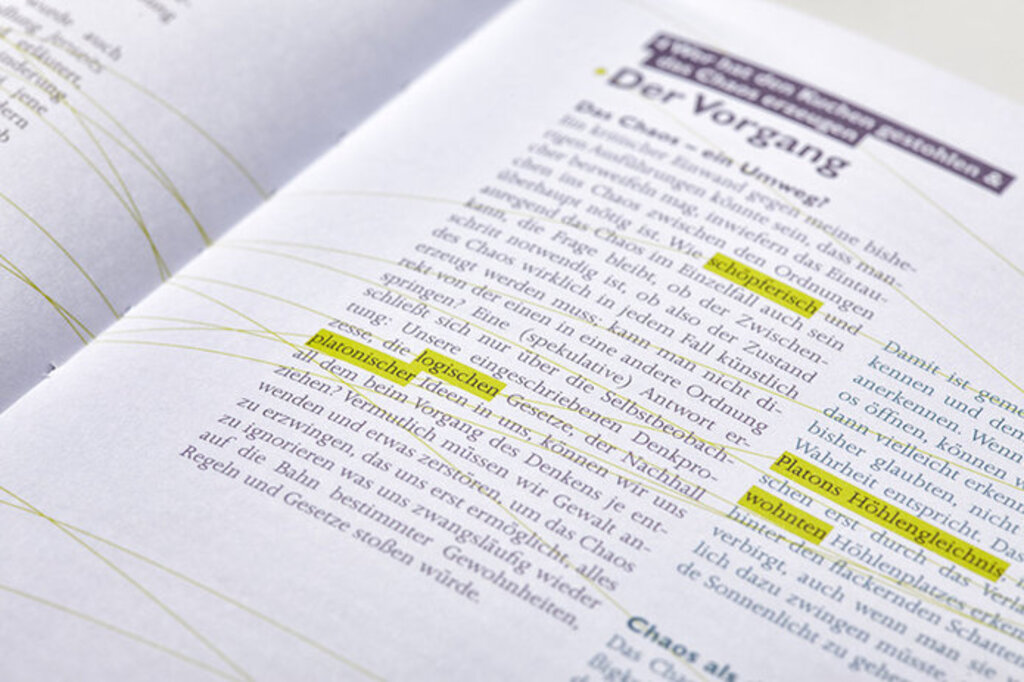 wurde
auch
Jenseits
erläutert,
inderung
jene
dern
b
Wer hat den Kuchen gestohlen &
das Chaos erzeugen
Der Vorgang
Das Chaos – ein Umweg?
Ein kritischer Einwand gegen meine bishe-
rigen Ausführungen könnte sein, dass man-
cher bezweifeln mag, inwiefern das Eintau-
chen ins Chaos zwischen den Ordnungen
überhaupt nötig ist. Wie schöpferisch und
anregend das Chaos im Einzelfall auch sein
kann, die Frage bleibt, ob der Zwischen-
schritt notwendig ist, ob also der Zustand
des Chaos wirklich in jedem Fall künstlich
erzeugt werden muss: kann man nicht di-
rekt von der einen in eine andere Ordnung
springen? Eine (spekulative) Antwort er-
schließt sich nur über die Selbstbeobach-
tung: Unsere eingeschriebenen Denkpro-
zesse, die logischen Gesetze, der Nachhall
platonischer Ideen in uns, können wir uns
all dem beim Vorgang des Denkens je ent-
ziehen? Vermutlich müssen wir Gewalt an-
wenden und etwas zerstören, um das Chaos
zu erzwingen, das uns erst ermöglicht, alles
zu ignorieren was uns zwangsläufig wieder
auf die Bahn bestimmter Gewohnheiten,
Regeln und Gesetze stoßen würde.
Damit ist geme
kennen und den
anerkennen. Wenn
os öffnen, können w
dann vielleicht erkenn
bisher glaubten, nicht
Wahrheit entspricht. Das
Platons Höhlengleichnis,
schen erst durch das Verla
wohnten Höhlenplatzes erken
hinter den flackernden Schatten
verbirgt, auch wenn man sie
lich dazu zwingen müsste
de Sonnenlicht zu gehe
Chaos als
Das Cha